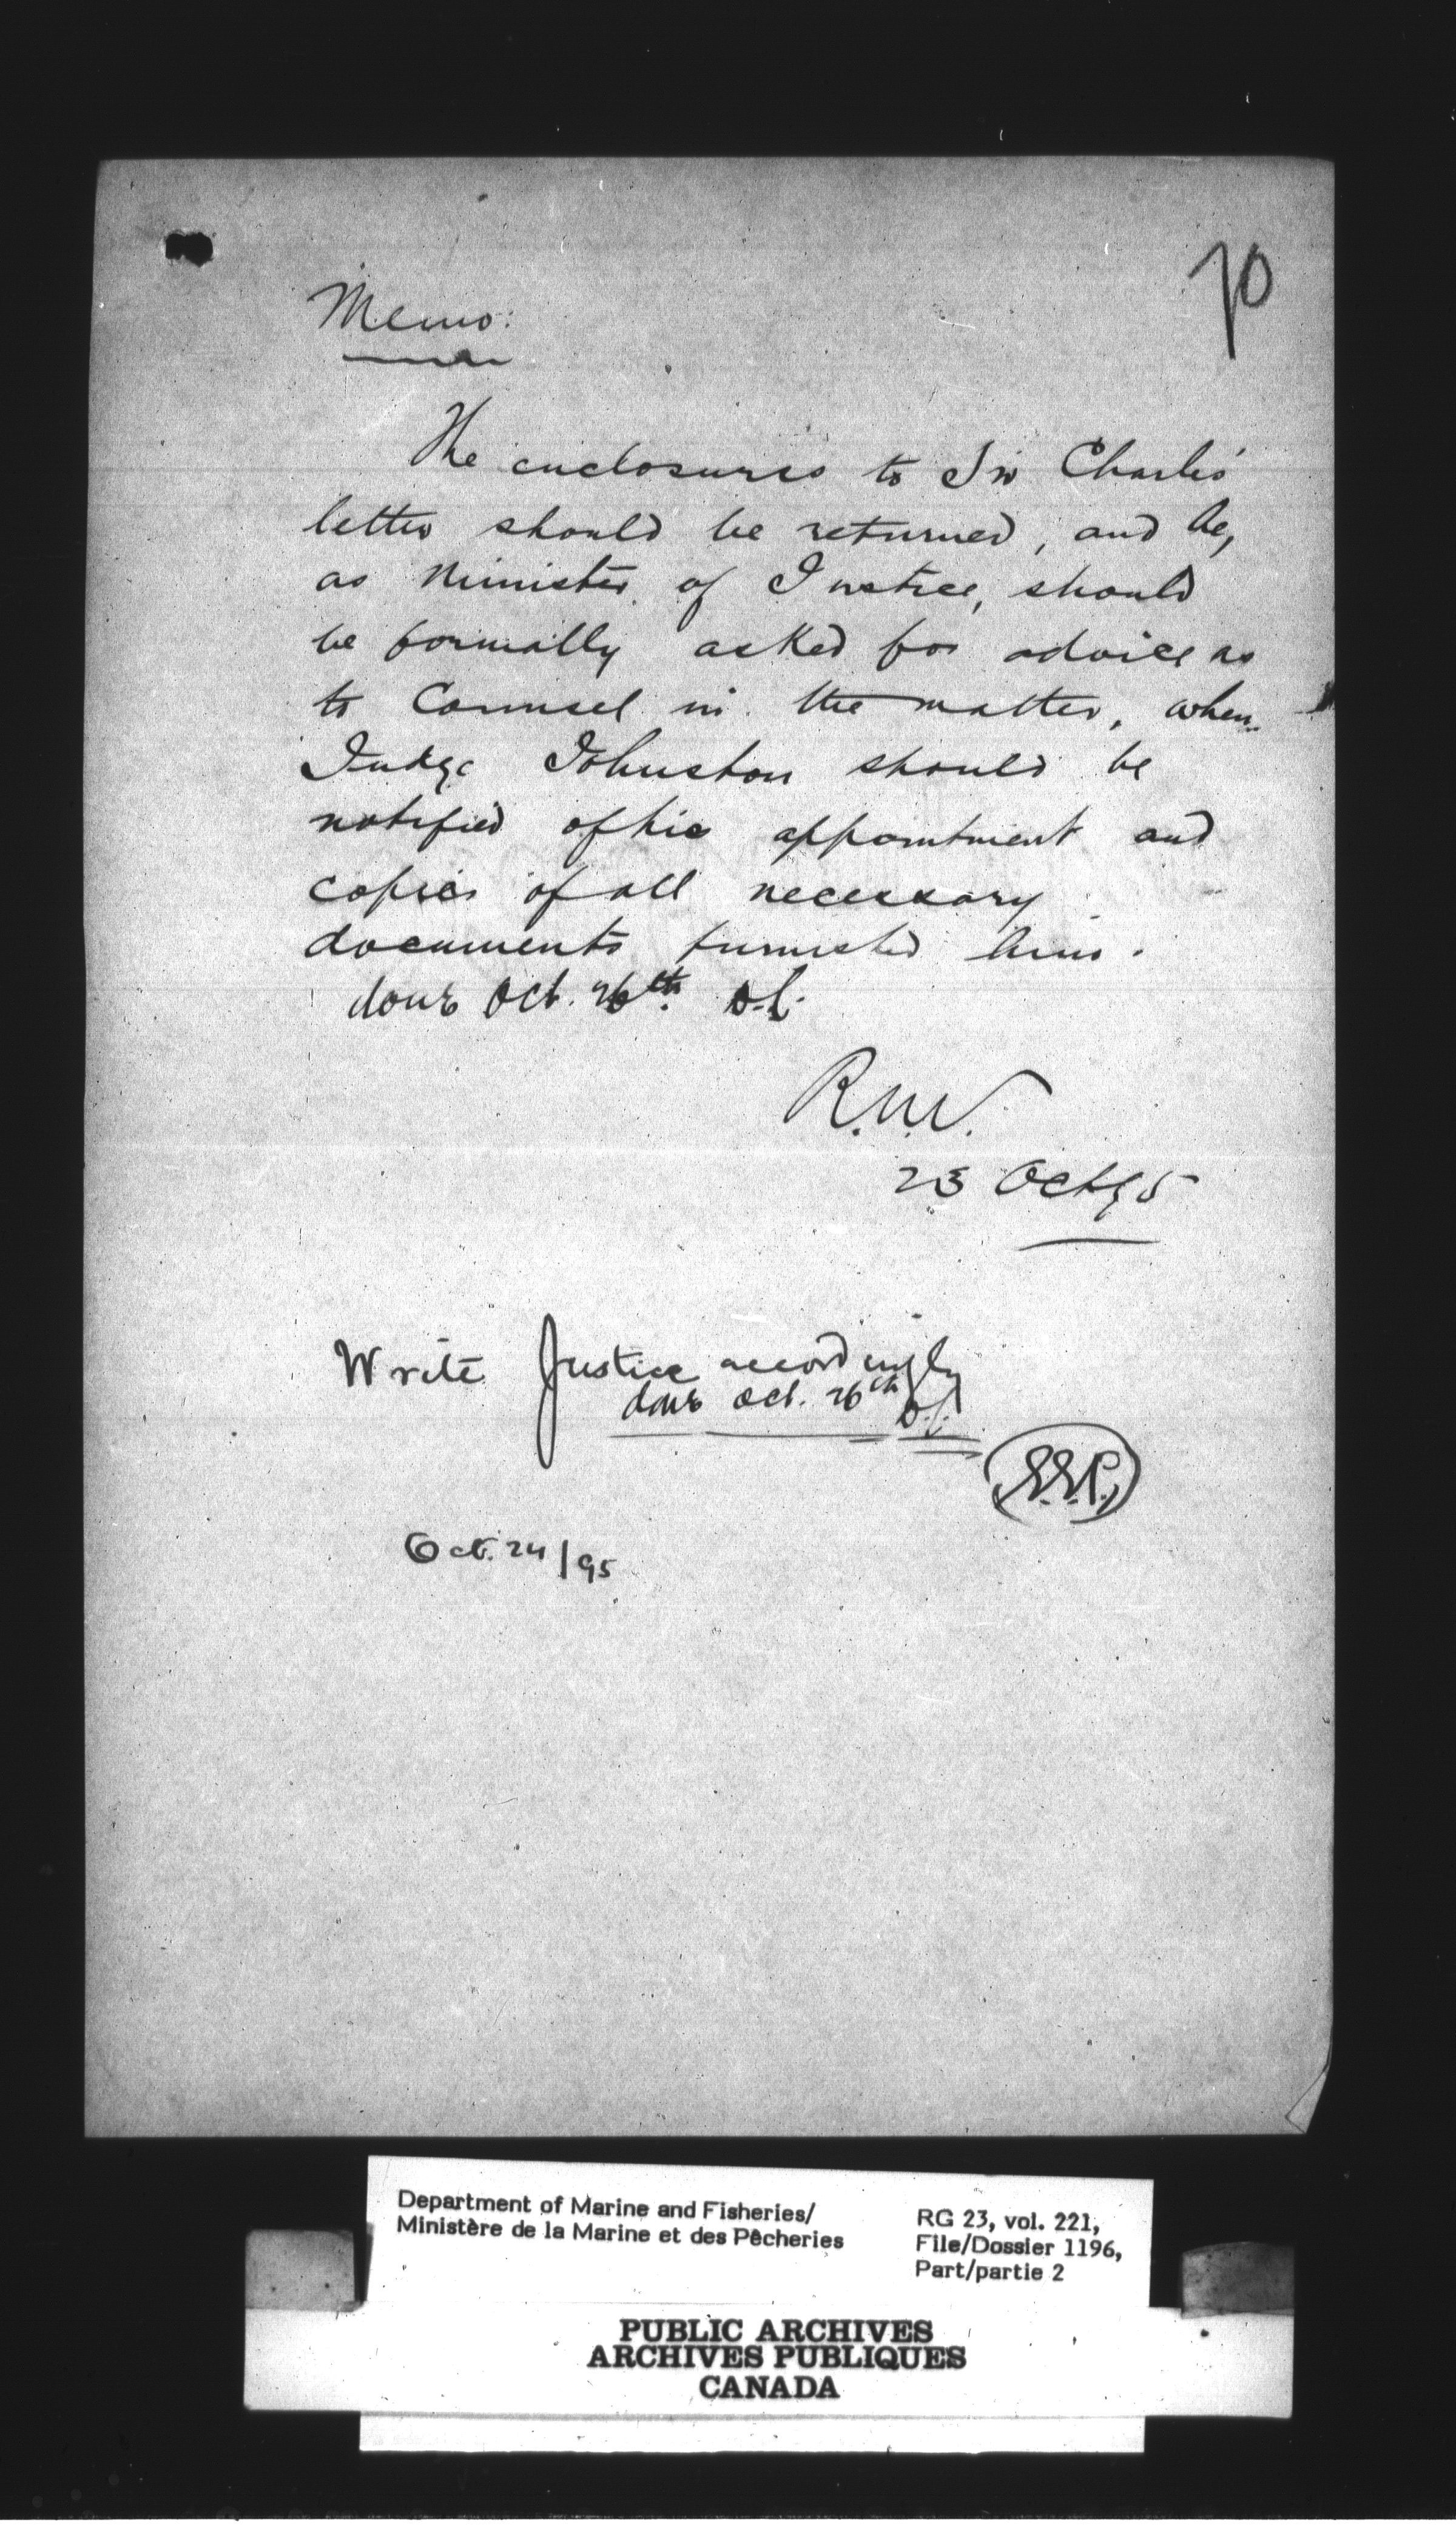 70
Memo:
The enclosures to Sir Charles'
letter should be returned, and he,
as Minister of Justice, should
be formally asked for advice as
to Counsel in the matter, when
Judge Johnston should be
notified of his appointment and
copies of all necessary
documents furnished him.
done Oct. 26th
R.N.V.
23 Oct 95
Write Justice accordingly
done Oct. 26th
E.E.P.
Oct. 24/95
Department of Marine and Fisheries/
Ministère de la Marine et des Pêcheries
RG 23, vol. 221,
File/Dossier 1196,
Part/partie 2
PUBLIC ARCHIVES
ARCHIVES PUBLIQUES
CANADA